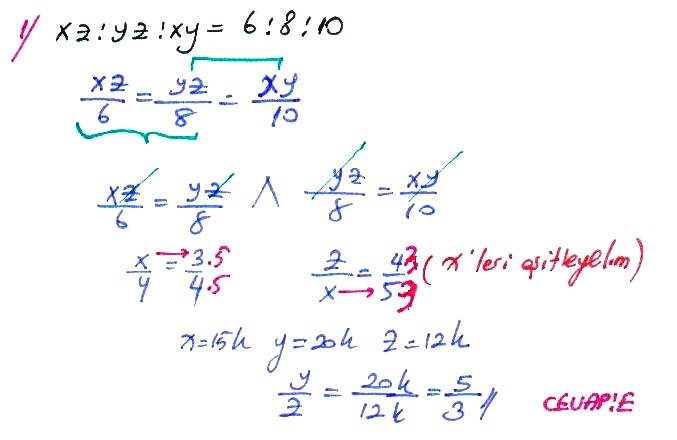 1) xz : yz : xy = 6 : 8 : 10
xz/6 = yz/8 = xy/10
xz/6 = yz/8 ∧ yz/8 = xy/10
x/y = 3.5/4.5 z/x = 4.3/5.3 (x'leri eşitleyelim)
x=15k y=20k z=12k
y/z = 20k/12k = 5/3 //
CEVAP:E